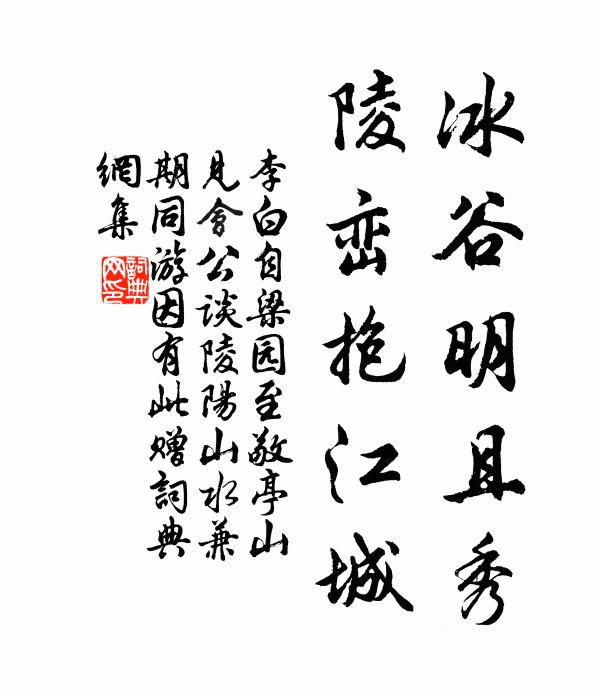 冰谷明且秀
陵峦抱江城
李白自梁园至敬亭山
见會公谈陵陽山水兼
期同游因有此赠詞典
網集
詞典
网印